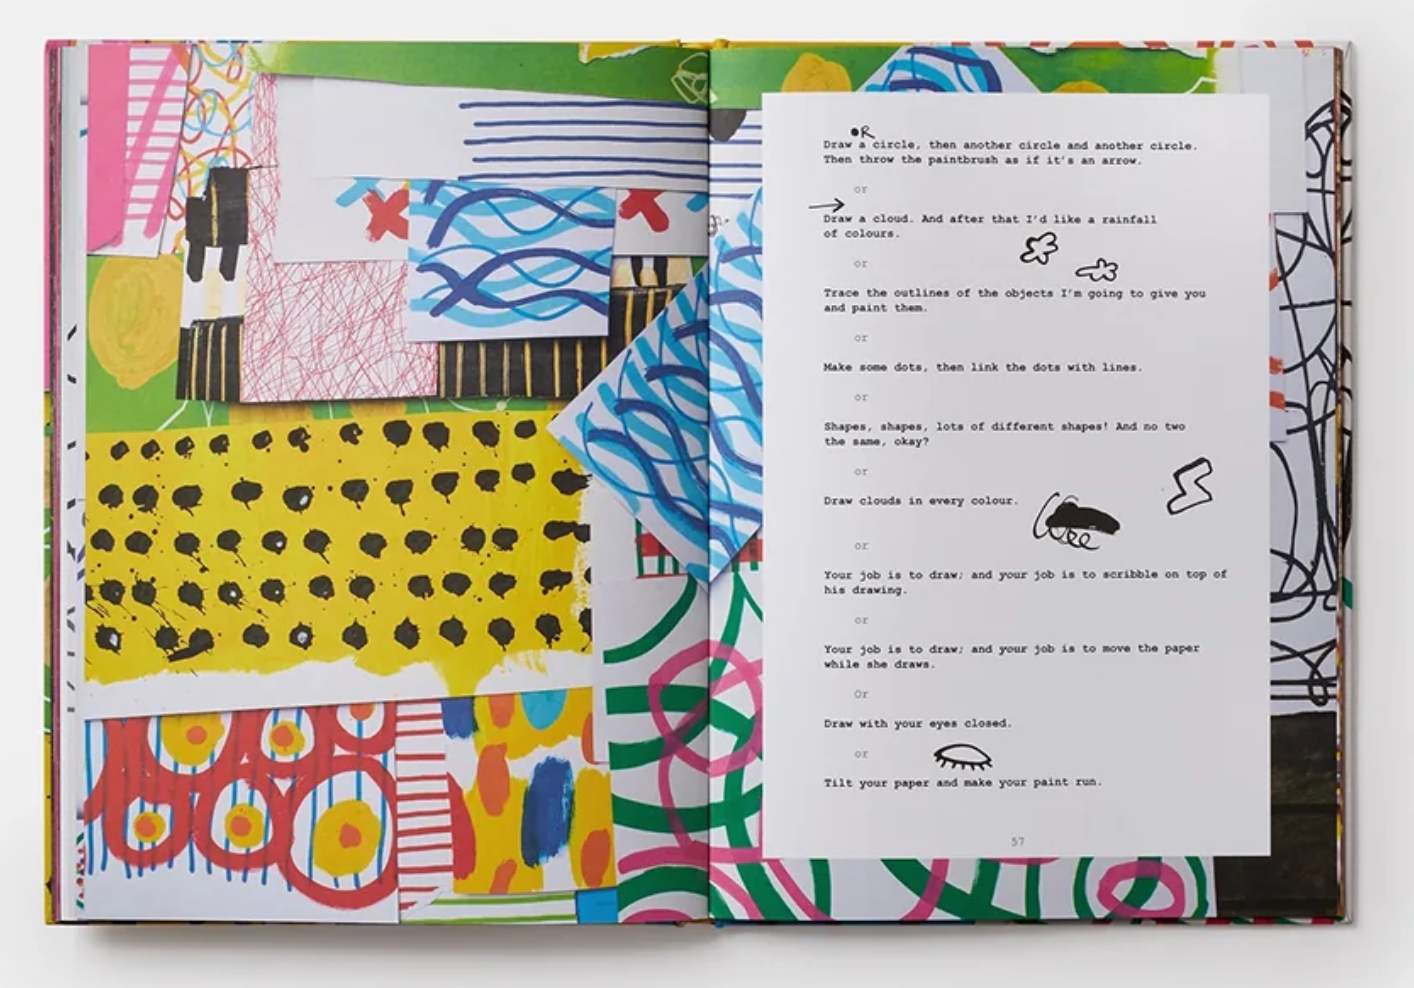 OR
Draw a circle, then another circle and another circle.
Then throw the paintbrush as if it's an arrow.
or
Draw a cloud. And after that I'd like a rainfall
of colours.
or
Trace the outlines of the objects I'm going to give you
and paint them.
or
Make some dots, then link the dots with lines.
or
Shapes, shapes, lots of different shapes! And no two
the same, okay?
or
Draw clouds in every colour.
or
Your job is to draw; and your job is to scribble on top of
his drawing.
or
Your job is to draw; and your job is to move the paper
while she draws.
Or
Draw with your eyes closed.
or
Tilt your paper and make your paint run.
57